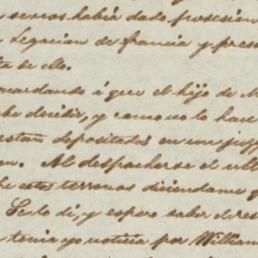 se nos habia dado posesión
Legacion de francia y pres
ta de ello.
uardando á que el hijo de M
be decidir, y como no lo hace
estan depositados en un juzg
Al despacharse el ulti
estos terrenos diciendome q
Se lo di, y espero saber el res
tenia yo noticia por William